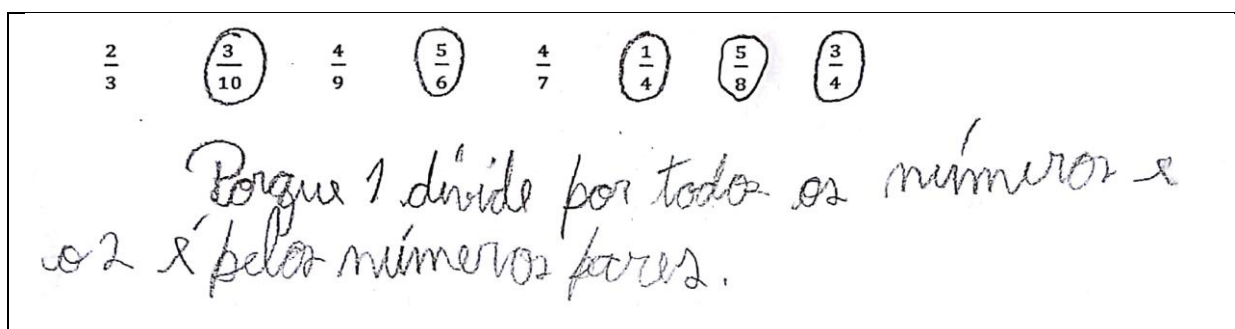 2/3 3/10 4/9 5/6 4/7 1/4 5/8 3/4
Porque 1 divide por todos os números e
o 2 é pelos números pares.